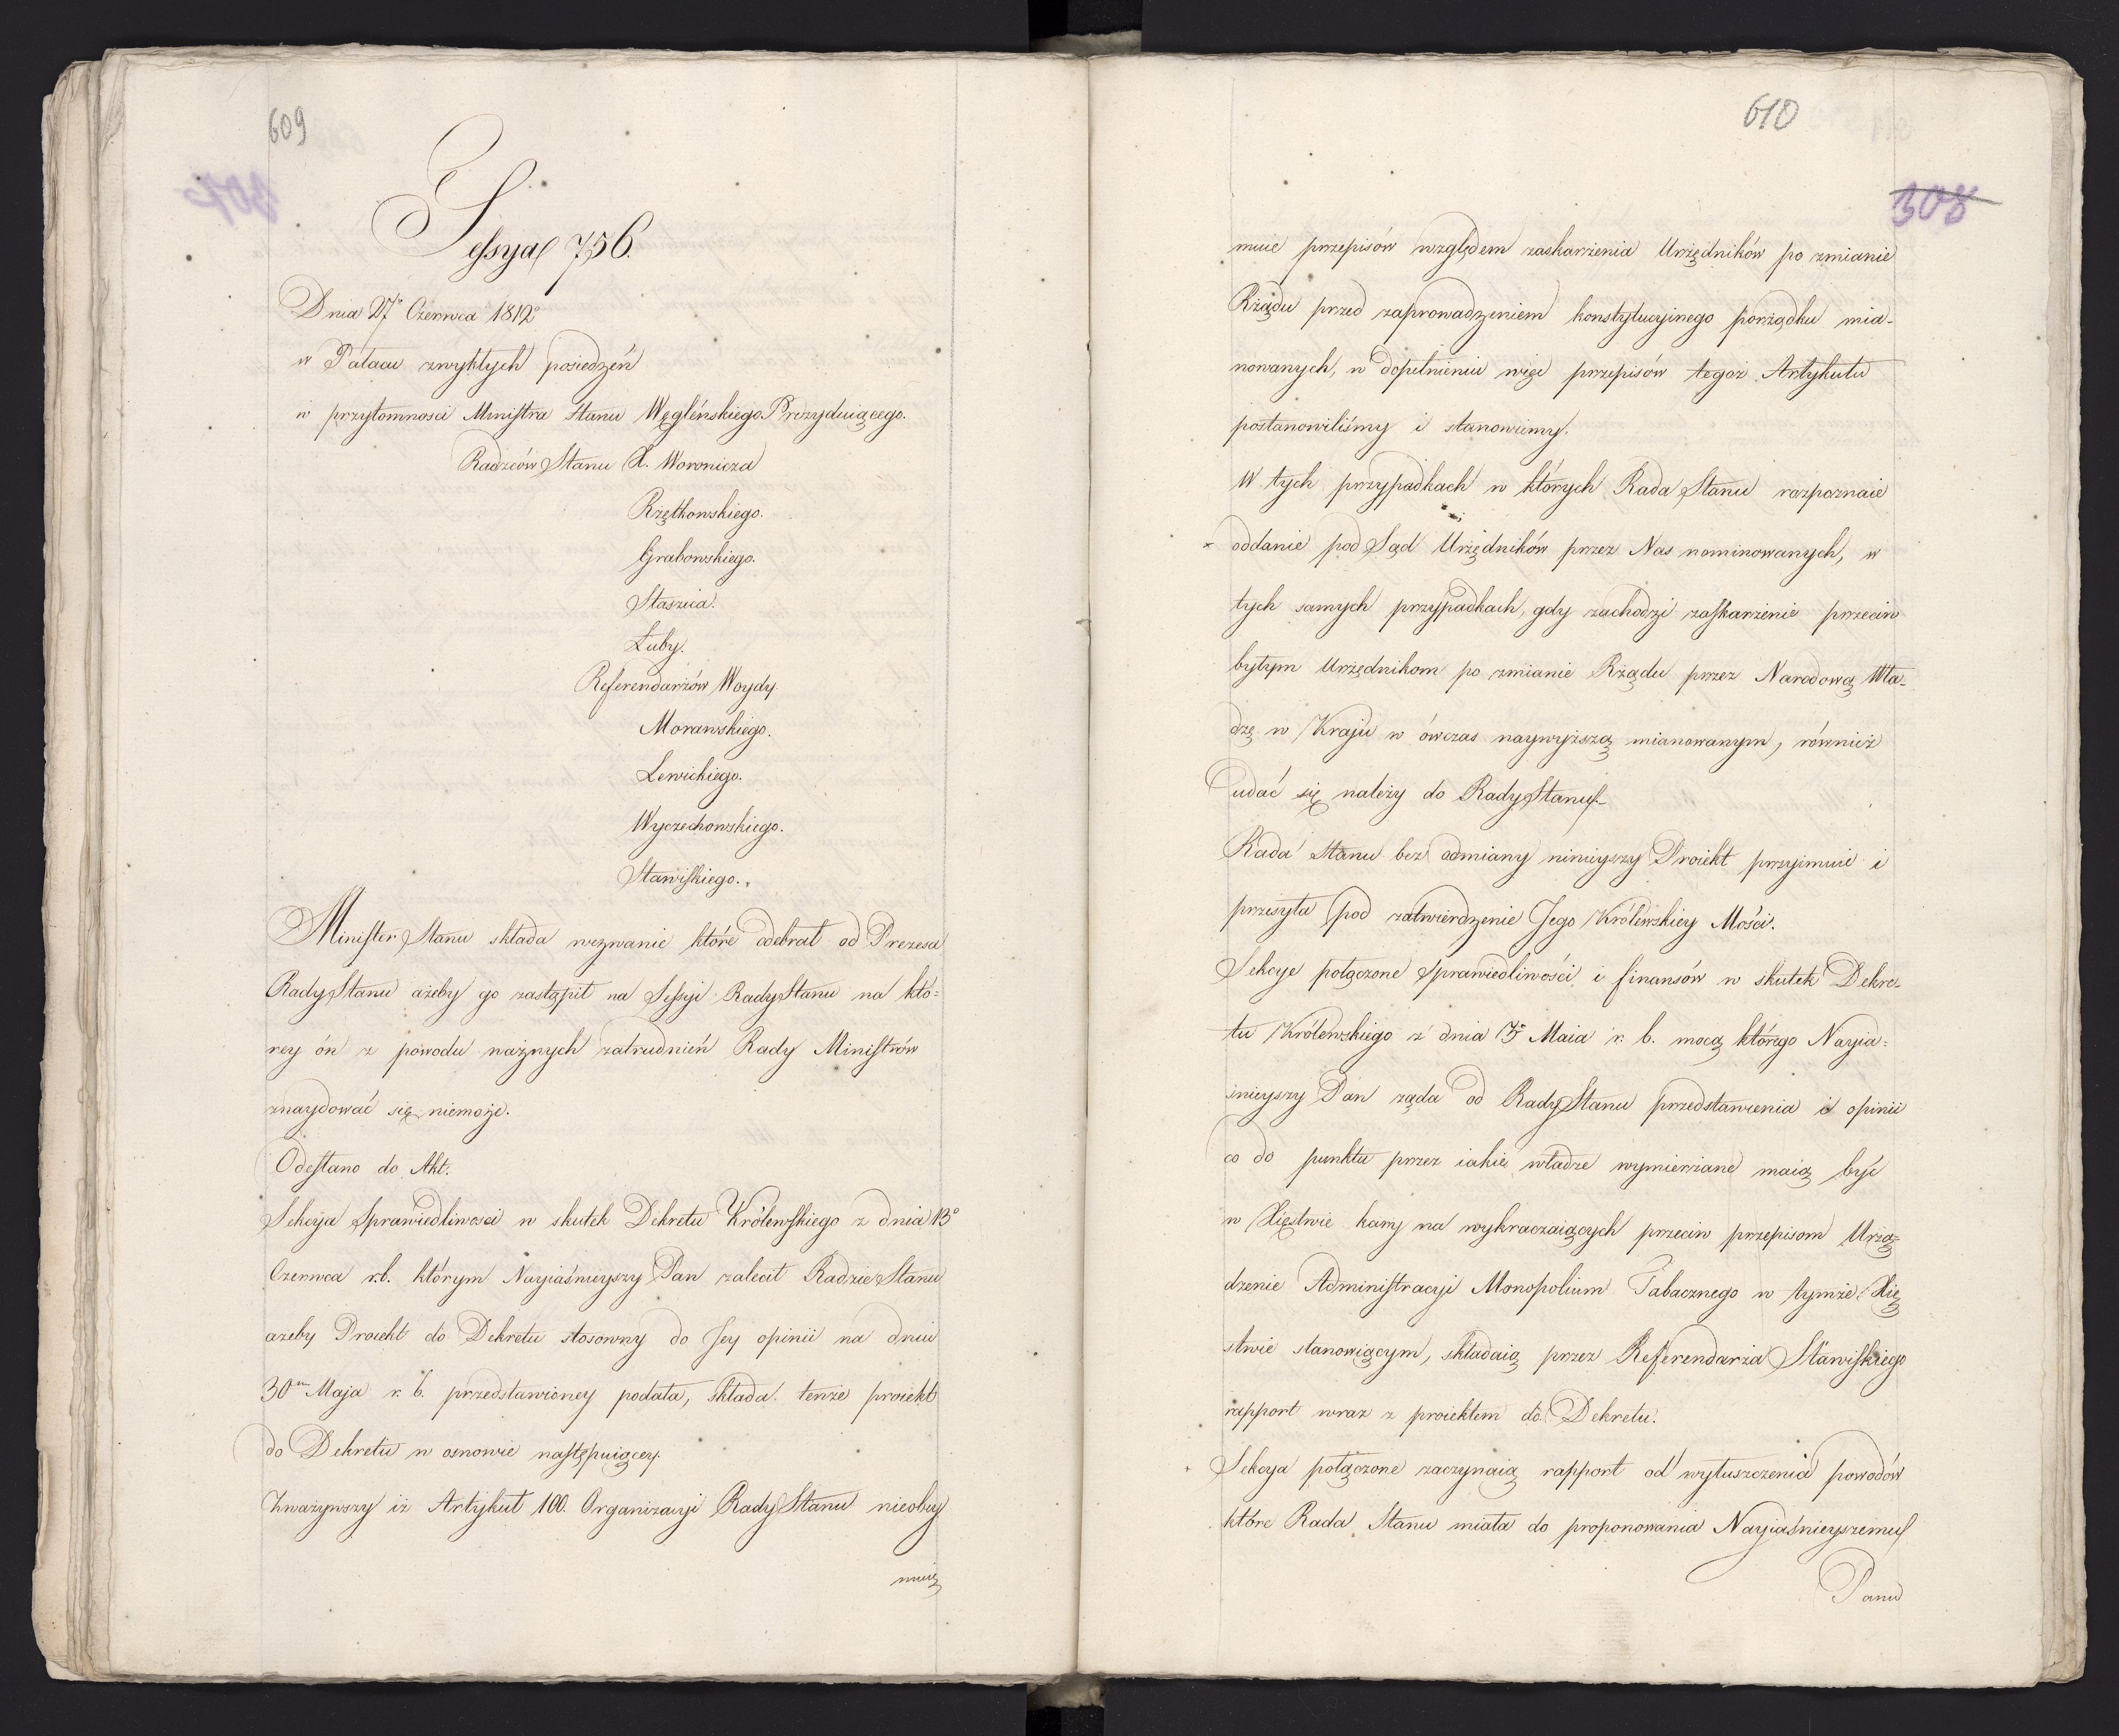 609
Sessya 756.
Dnia 27º Czerwca 1812º
w Pałacu zwykłych posiedzeń
w przytomnosci Ministra Stanu Węgleńskiego Prezyduiącego.
Radzców Stanu X. Woronicza
Rzętkowskiego.
Grabowskiego.
Staszica.
Łuby.
Referendarzów Woydy.
Morawskiego.
Lewickiego.
Wyczechowskiego.
Stawiskiego.
Minister Stanu składa wezwanie które odebrał od Prezesa
Rady Stanu ażeby go zastąpił na Sessyi Rady Stanu na któ=
rey ón z powodu ważnych zatrudnień Rady Ministrów
znaydować się niemoże.
Odesłano do Akt.
Sekcya Sprawiedliwosci w skutek Dekretu Królewskiego z dnia 13º
Czerwca r.b. którym Nayiaśnieyszy Pan zalecił Radzie Stanu
ażeby Proiekt do Dekretu stosowny do Jey opinii na dniu
30m Maja r. b. przedstawioney podała, składa tenże proiekt
do Dekretu w osnowie następuiącey.
Zważywszy iż Artykuł 100. Organizacyi Rady Stanu nieobey
muie
610
308
muie przepisów względem zaskarżenia Urzędników po zmianie
Rządu przed zaprowadzeniem konstytucyinego porządku mia-
nowanych, w dopełnieniu więc przepisów tegoż Artykułu
postanowiliśmy i stanowimy.
W tych przypadkach w których Rada Stanu rozpoznaie
oddanie pod Sąd Urzędników przez Nas nominowanych, w
tych samych przypadkach, gdy zachodzi zaskarżenie przeciw
byłym Urzędnikom po zmianie Rządu przez Narodową Wła-
dzę w Kraju w ówczas naywyższą mianowanym, również
udać się należy do Rady Stanu.
Rada Stanu bez odmiany ninieyszy Proiekt przyimuie i
przesyła pod zatwierdzenie Jego Królewskiey Mości.
Sekcye połączone Sprawiedliwości i finansów w skutek Dekre-
tu Królewskiego z dnia Maia r. b. mocą którego Nayia=
śnieyszy Pan żąda od Rady Stanu przedstawienia i opinii
co do punktu przez iakie władze wymierzane maią być
w Xięstwie kary na wykraczaiących przeciw przepisom Urzą=
dzenie Administracyi Monopolium Tabacznego w tymże Xię
stwie stanowiącym, składaią przez Referendarza Stawiskiego
rapport wraz z proiektem do Dekretu.
Sekcya połączone zaczynaią rapport od wyłuszczenia powodów
które Rada Stanu miała do proponowania Nayiaśnieyszemu
Panu